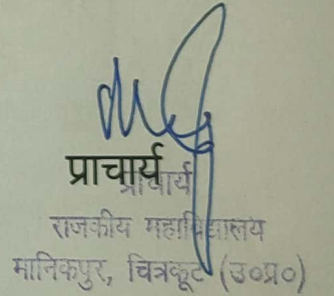 प्राचार्य
प्राचार्य
राजकीय महाविद्यालय
मानिकपुर, चित्रकूट (उ०प्र०)